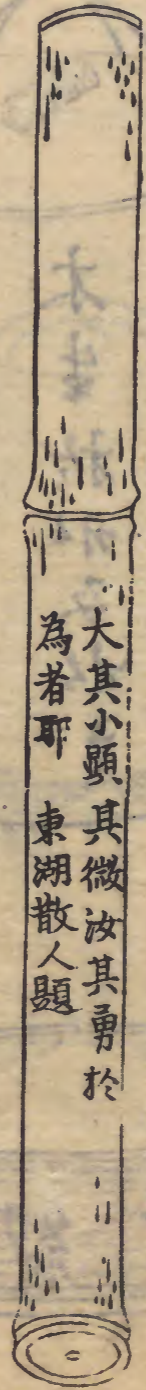 大其小顕其微汝其勇於
為者耶 東湖散人題